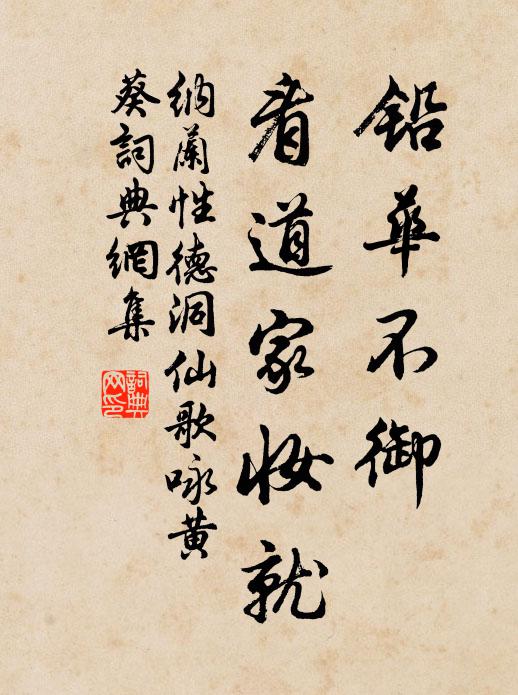 铅華不御
看道家妝就
納蘭性德洞仙歌咏黄
葵詞典網集
詞典
网印